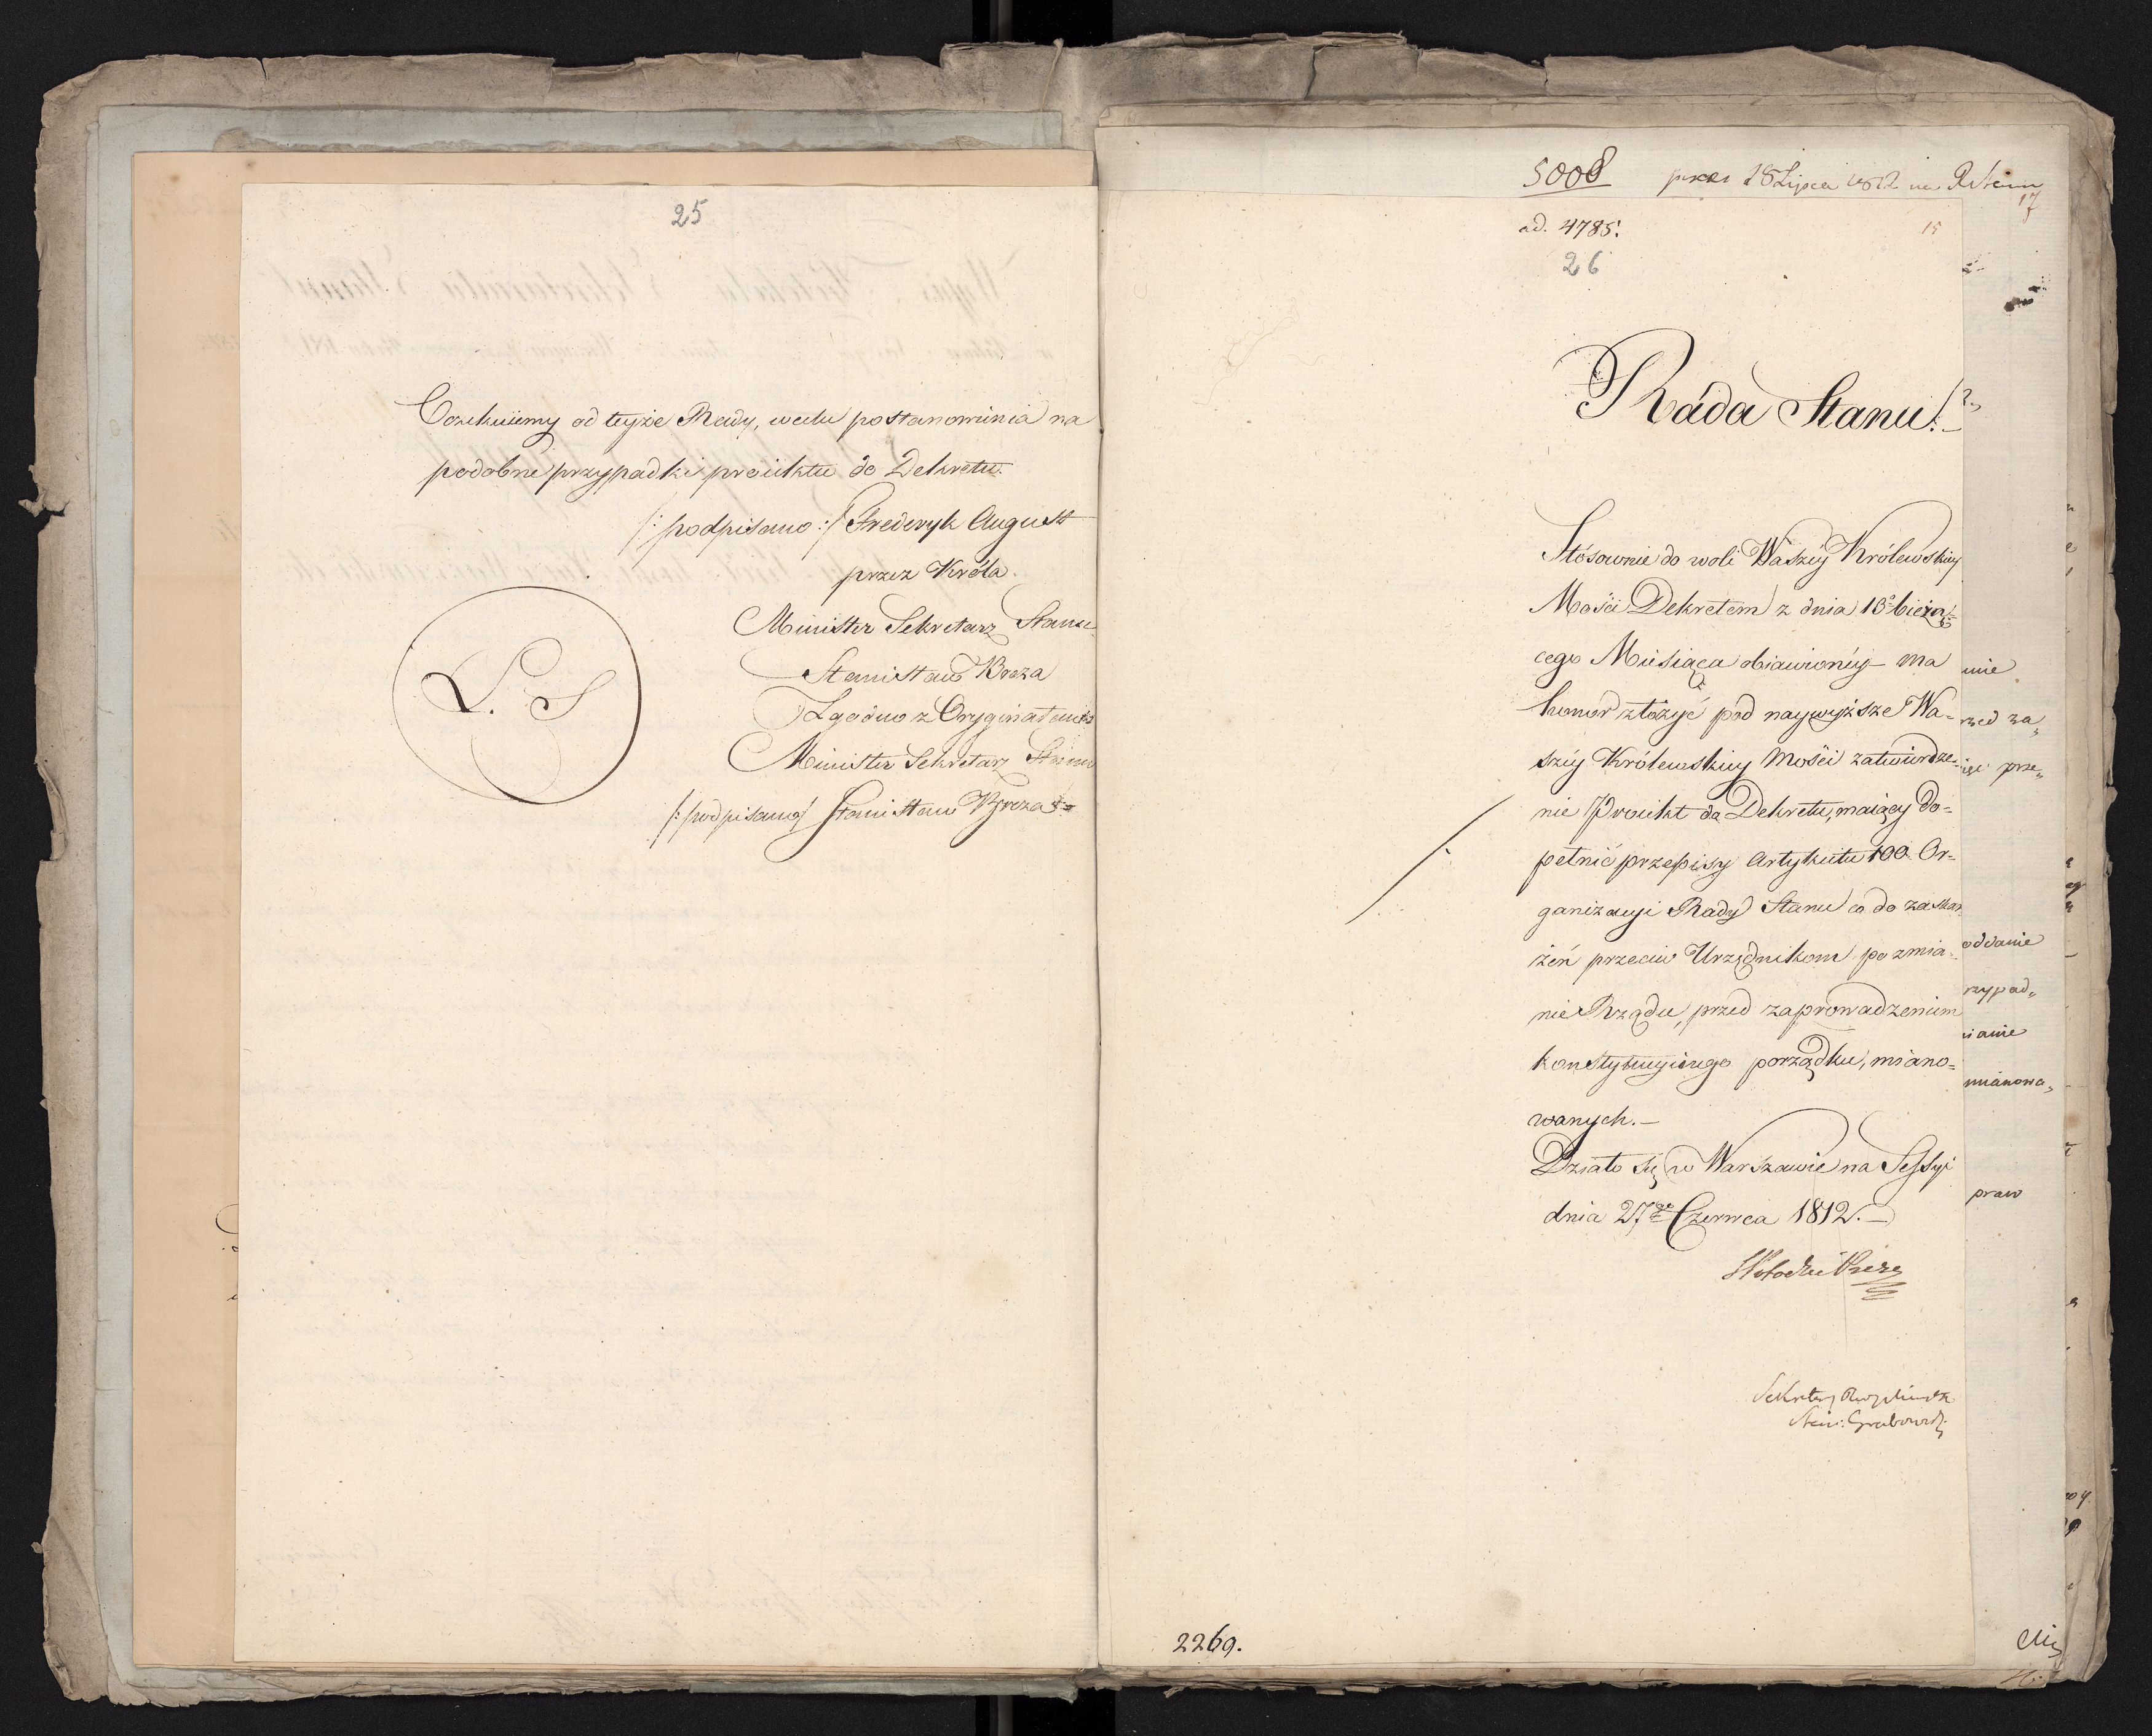 25
Oczekuiemy od teyże Rady, wcelu postanowienia na
podobne przypadki proiektu do Dekretu.
/: podpisano :/ Frederyk August
przez Króla.
Minister Sekretarz Stanu
Stanisław Breza
Zgodno z Oryginałem
Minister Sekretarz Stanu
/: podpisano / Stanisław Breza
L. S
5008 18 Lipca 1812
17
ad. 4785.
15
26
Ráda Stanu.
Stósownie do woli Wászéy Królewskiey
Mości Dekretem z dnia 13º bieżą=
cego Miesiąca obiawionéy – ma
honor złożyć pod naywyższe Wa=
széy Królewskiey Mości zatwierdze=
nie Proiekt do Dekretu, maiący do=
pełnić przepisy Artykułu 100 Or=
ganizacyi Rady Stanu co do zaskar
żeń przeciw Urzędnikom po zmia=
nie Rządu, przed zaprowadzeniem
konstytucyinego porządku, miano=
wanych. –
Działo się w Warszawie na Sessyi
dnia 27go Czerwca 1812. –
Sekretarz
Stan: Grabowski
2269.
nie
rzed za„
prze„
oddanie
rzypad„
ianie
mianowa„
praw